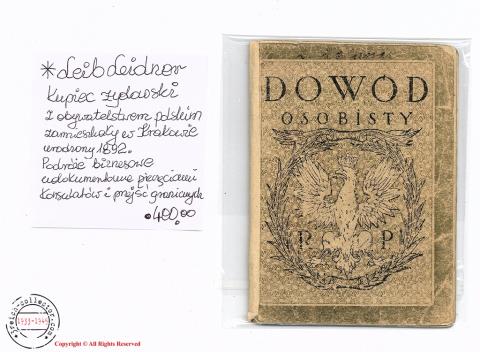 *Leib Leidner
Kupiec żydowski
z obywatelstwem polskim
zamieszkały w Krakowie
urodzony 1892.
Podróże biznesowe
udokumentowane pieczęciami
Konsulatów i przejść granicznych
•400,00
DOWÓD
OSOBISTY
R P
1933-1945
Copyright © All Rights Reserved